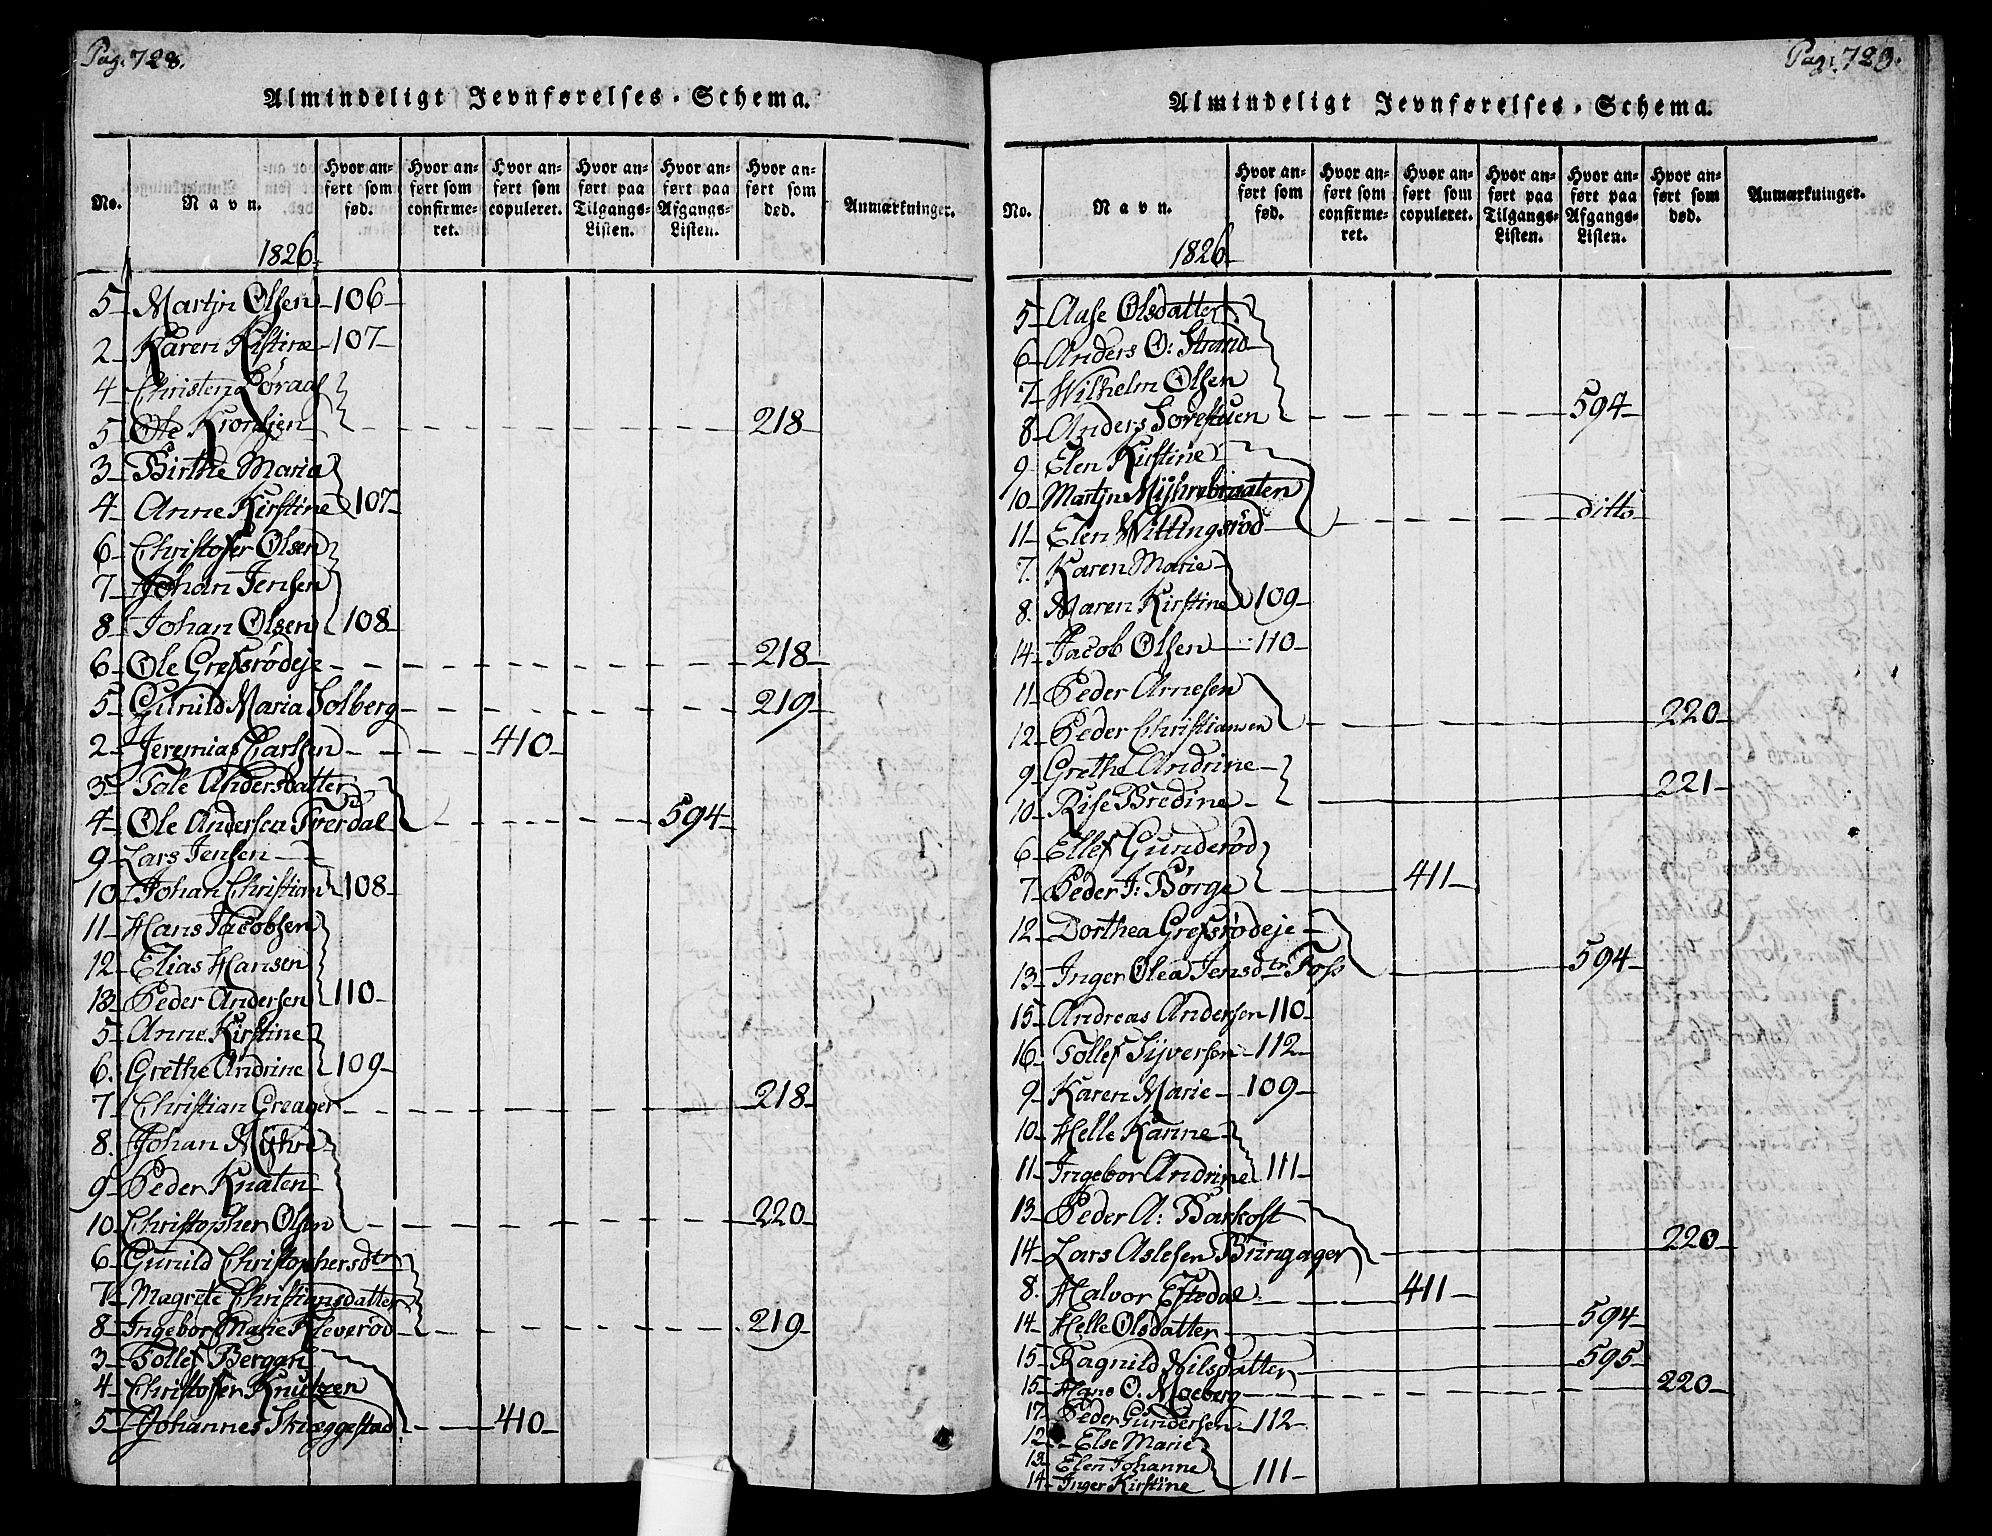 Pag. 728.
Almindeligt Jevnførelses-Schema.
No.
Navn.
Hvor anført som fød.
Hvor anført som confirmeret.
Hvor anført som copuleret.
Hvor anført paa Tilgangs-Listen.
Hvor anført paa Afgangs-Listen.
Hvor anført som død.
Anmærkninger.
1826.
5 Martjn Olsen 106
2 Karen Kistine 107
4 Christen
5 Ole 218
3 Birthe Maria
4 Anne Kirstine 107
6 Christoffer Olsen
7 Johan Jensen
8 Johan Olsen 108
6 Ole Grefsrødeje 218
5 Gunild Maria Solberg 219
2 Jeremias Carlsen 410
3 Tale Andersdatter
4 Ole Andersen Tverdal 594
9 Lars Jensen
10 Johan Christian 108
11 Hans Jacobsen
12 Elias Hansen
13 Peder Andersen 110
5 Anne Kirstine
6. Grethe Andrine 109
7 Christian Greager 218
8. Johan Myhre
9 Peder Knaten
10 Christopher Olsen 220
6 Gunild Christophersdtr
7 Magrete Christiansdatter
8 Ingebor Marie Kleverød 219
3 Tollef Bergan
4 Christoffer Knutzen
5 Johannes Skiæggestad 410
Pag: 729.
Almindeligt Jevnførelses-Schema.
No.
Navn.
Hvor anført som fød.
Hvor anført som confirmeret.
Hvor anført som copuleret.
Hvor anført paa Tilgangs-Listen.
Hvor anført paa Afgangs-Listen.
Hvor anført som død.
Anmærkninger.
1826
5 Aase Olsdatter
6 Anders O: Strand
7 Wilhelm Olsen
8 Anders Sorestuen 594
9 Elen Kirstine
10 Martjn Myhrebraaten
11 Elen Wittingsrød ditto
7. Karen Marie
8. Maren Kirstine 109
14 Jacob Olsen 110
11 Peder Arnesen
12 Peder Christiansen 220
9 Grethe Andrine
10 Rise Bredine 221
6 Ellef Gunderød
7 Peder J: Børge 411
12 Dorthea Grefsrødeje
13 Inger Olea Jensdtr Foss 594
15 Andreas Andersen 110
16 Tollef Sijversen 112
9 Karen Marie 109
10 Helle Karine
11 Ingebor Andrine 111
13 Peder A: Barkost
14 Lars Aslesen Bringager 220
8. Halvor Eftedal 411
14 Helle Olsdatter 594
15 Ragnild Nilsdatter 595
15 Hans O. Moeberg 220
17 Peder Gundersen 112
12 Else Marie
13 Elen Johanne
14 Inger Kirstine 111